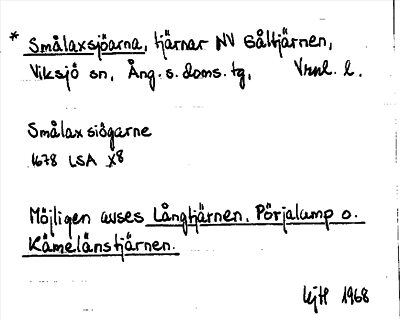 * Smålaxsjöarna, tjärnar NV Gåltjärnen,
Viksjö sn, Ång. s. doms. tg, Vrnl. l.
Smålaxsiögarne
1678 LSA X8
Möjligen avses Långtjärnen, Pörjalamp o.
Kämelänstjärnen.
1968